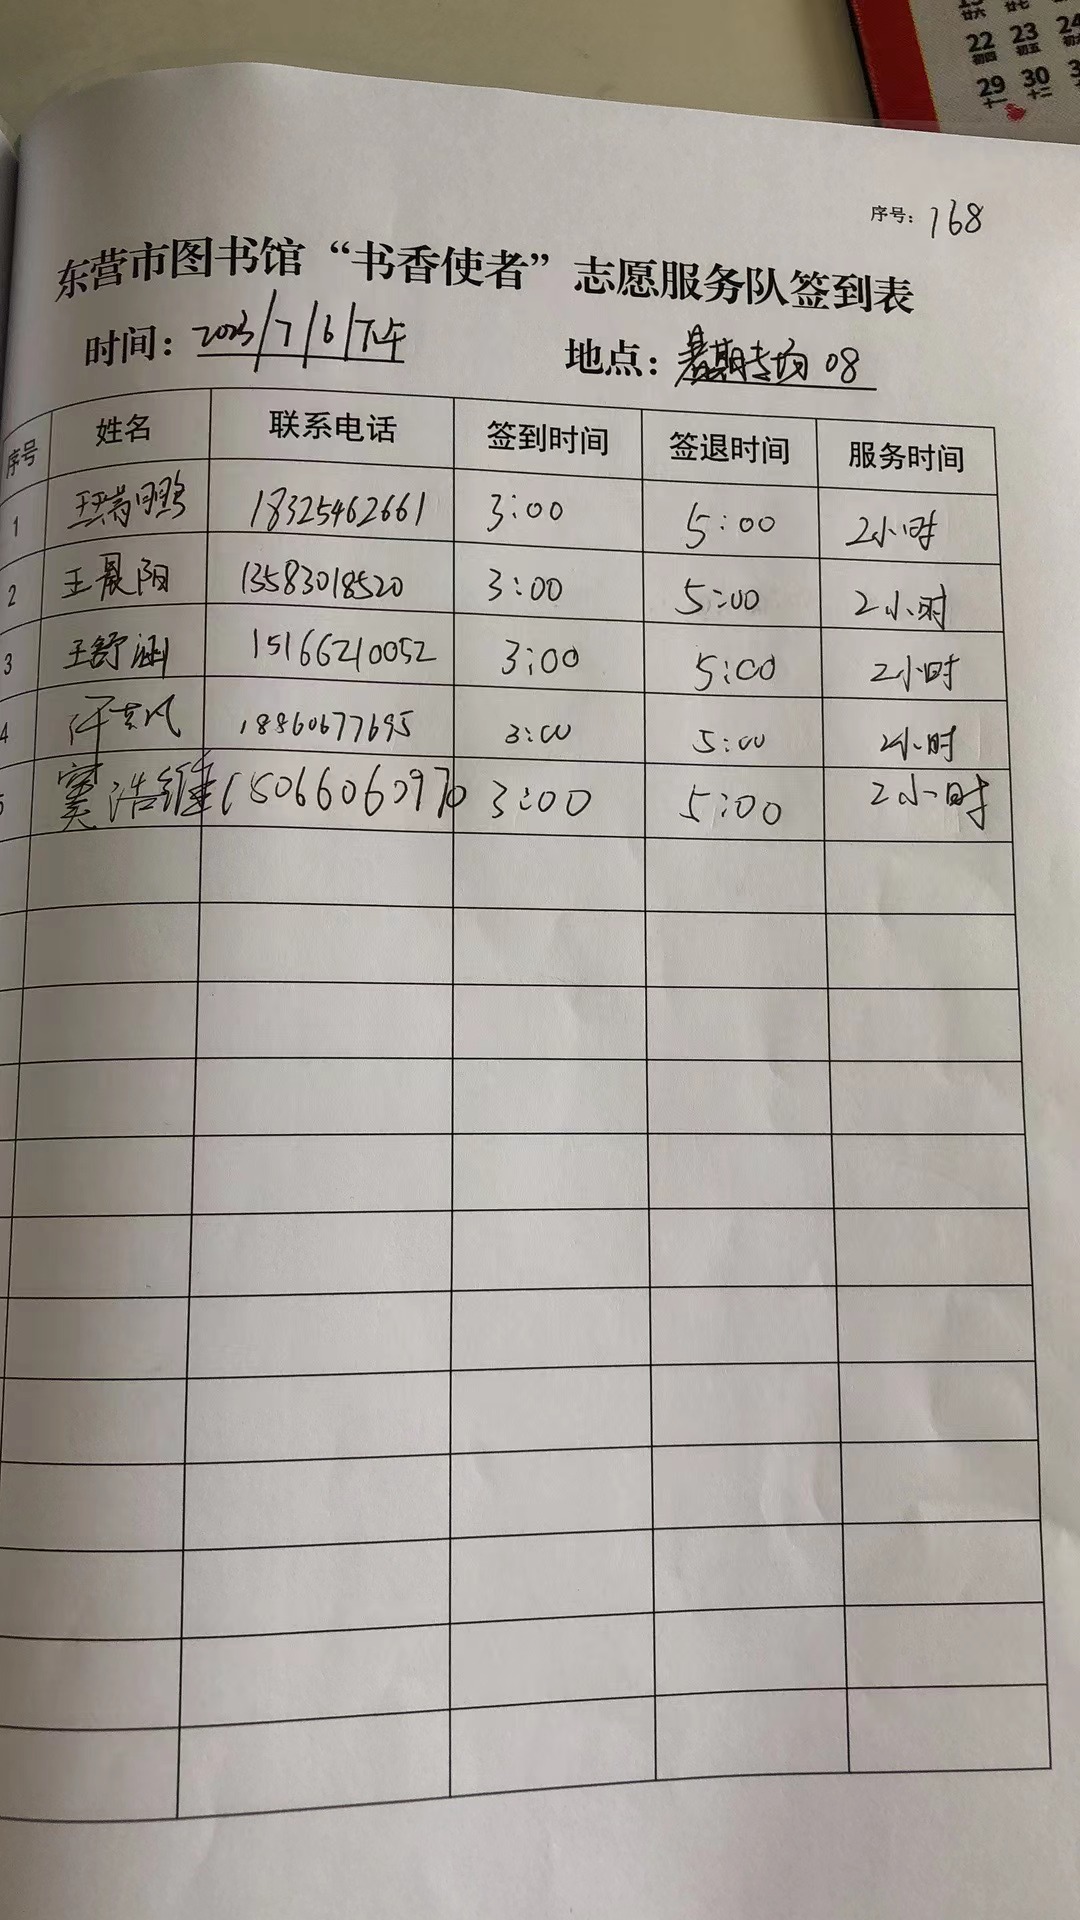 廿六 廿七
22 23 24
初四 初五
29 30
十一 十二
序号: 168
东营市图书馆“书香使者”志愿服务队签到表
时间: 2023/7/6/下午 地点: 暑期专场 08
序号 姓名 联系电话 签到时间 签退时间 服务时间
1 王瑞鹏 18325462661 3:00 5:00 2小时
2 王晨阳 13583018520 3:00 5:00 2小时
3 王舒涵 15166210052 3:00 5:00 2小时
4 18860677695 3:00 5:00 2小时
5 窦浩维 15066060970 3:00 5:00 2小时